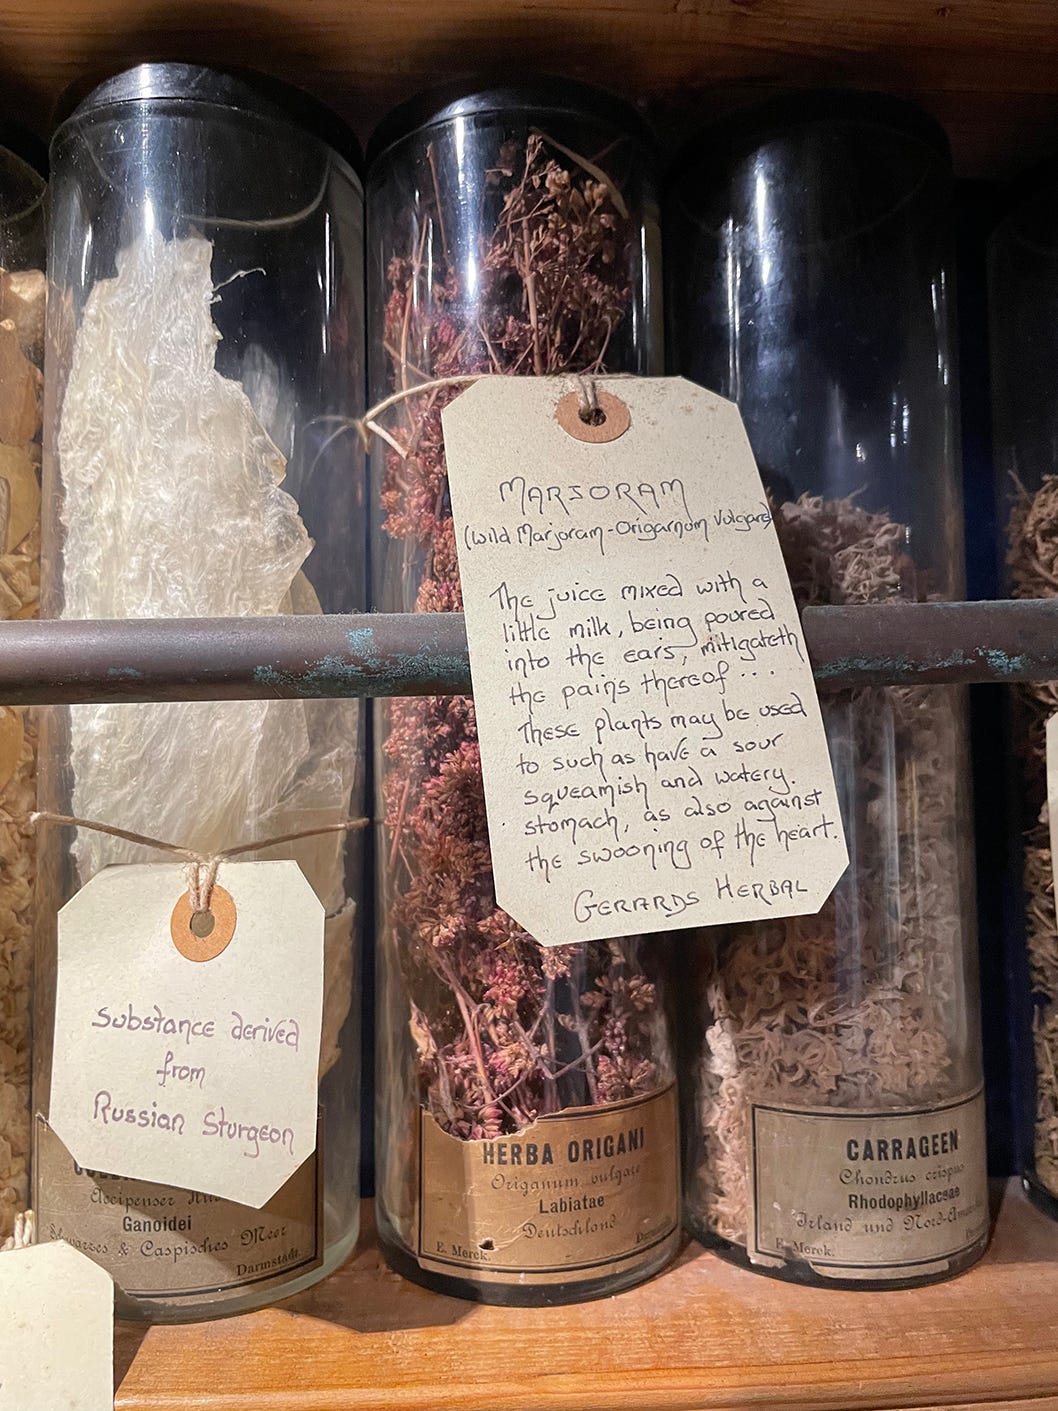 MARJORAM
(Wild Marjoram-Origarnum Vulgare)
The juice mixed with a
little milk, being poured
into the ears, mitigateth
the pains thereof ...
These plants may be used
to such as have a sour
squeamish and watery.
stomach, as also against
the swooning of the heart.
GERARDS HERBAL
Substance derived
from
Russian Sturgeon
Accipenser
Ganoidei
Schwarzes & Caspisches Meer
Darmstadt.
HERBA ORIGANI
Origanum vulgare
Labiatae
Deutschland
E. Merck.
CARRAGEEN
Chondrus crispus
Rhodophyllaceae
Irland und Nord-
E. Merck.